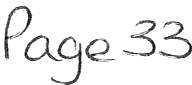 Page 33